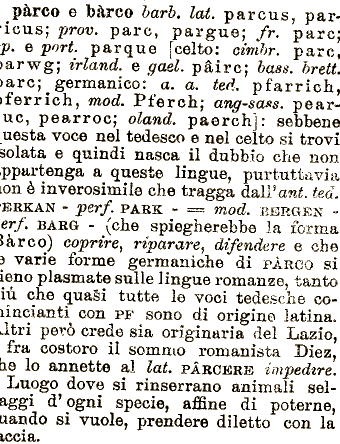 pàrco e bàrco barb. lat. parcus, par-
ricus; prov. parc, pargue; fr. parc;
sp. e port. parque [celto: cimbr. parc,
parwg; irland. e gael. pâirc; bass. brett.
parc; germanico: a. a. ted. pfarrich,
pferrich, mod. Pferch; ang-sass. pear-
ruc, pearroc; oland. paerch]: sebbene
questa voce nel tedesco e nel celto si trovi
isolata e quindi nasca il dubbio che non
appartenga a queste lingue, purtuttavia
non è inverosimile che tragga dall'ant. ted.
PERKAN - perf. PARK - = mod. BERGEN -
perf. BARG - (che spiegherebbe la forma
Bàrco) coprire, riparare, difendere e che
le varie forme germaniche di PÀRCO si
sieno plasmate sulle lingue romanze, tanto
più che quaši tutte le voci tedesche co-
mincianti con PF sono di origine latina.
Altri però crede sia originaria del Lazio,
e fra costoro il sommo romanista Diez,
che lo annette al lat. PÂRCERE impedire.
Luogo dove si rinserrano animali sel-
vaggi d'ogni specie, affine di poterne,
quando si vuole, prendere diletto con la
caccia.